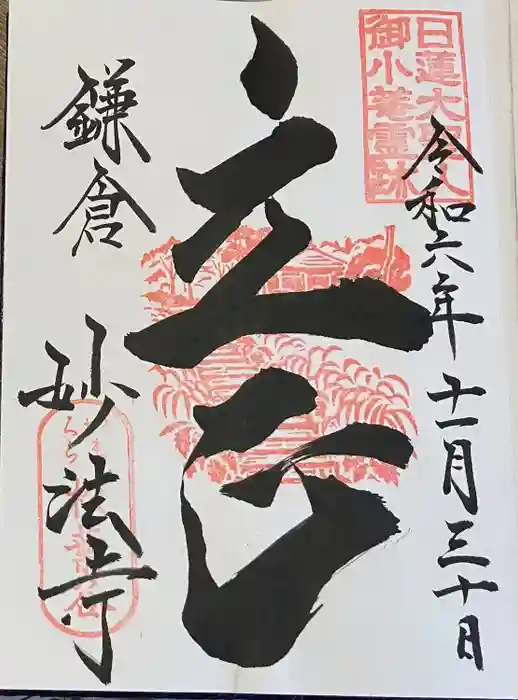 日蓮大聖人
御小菴靈跡
令和六年十一月三十日
立正
鎌倉
妙法寺